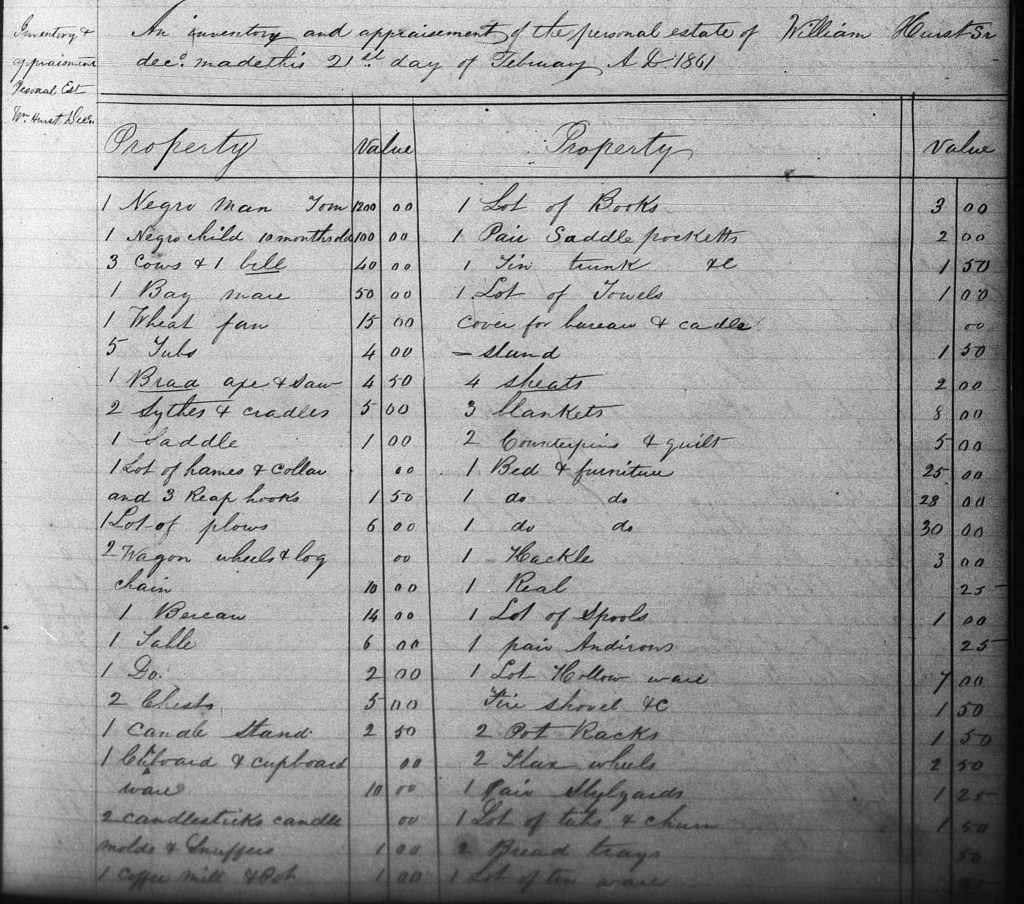 Inventory &
appraisment
Pesonal Est
Wm Hurst Dec
An inventory and appraisement of the personal estate of William Hurst Sr
dec. made this 21st day of February A D. 1861
Property Value Property Value
1 Negro man Tom 1200 00
1 Negro child 10 months old 100 00
3 Cows & 1 bell 40 00
1 Bay mare 50 00
1 Wheat fan 15 00
5 Tubs 4 00
1 Brad axe & saw 4 50
2 Sythes & cradles 5 00
1 Saddle 1 00
1 Lot of hames & collar 00
and 3 Reap hooks 1 50
1 Lot of plows 6 00
2 Wagon wheels & log 00
chain 10 00
1 Bereau 14 00
1 Table 6 00
1 Do. 2 00
2 Chests 5 00
1 candle stand 2 50
1 Cuboard & cupboard 00
ware 10 00
2 candlesticks candle 00
molds & Snuffers 1 00
1 Coffee mill & Pot 1 00
1 Lot of Books 3 00
1 Pair Saddle pocketts 2 00
1 Tin trunk &C 1 50
1 Lot of Towels 1 00
Cover for bureau & cadle 00
- stand 1 50
4 sheats 2 00
3 blankets 8 00
2 Counterpins & quilt 5 00
1 Bed & furniture 25 00
1 do do 28 00
1 do do 30 00
1 Hackle 3 00
1 Real 25
1 Lot of Spools 1 00
1 pair Andirons 25
1 Lot Hollow ware 7 00
Fire shovel &C 1 50
2 Pot Racks 1 50
2 Flax wheels 2 50
1 Pair Stylyards 1 25
1 Lot of tubs & churn 1 50
2 Bread trays 50
1 Lot of tin ware